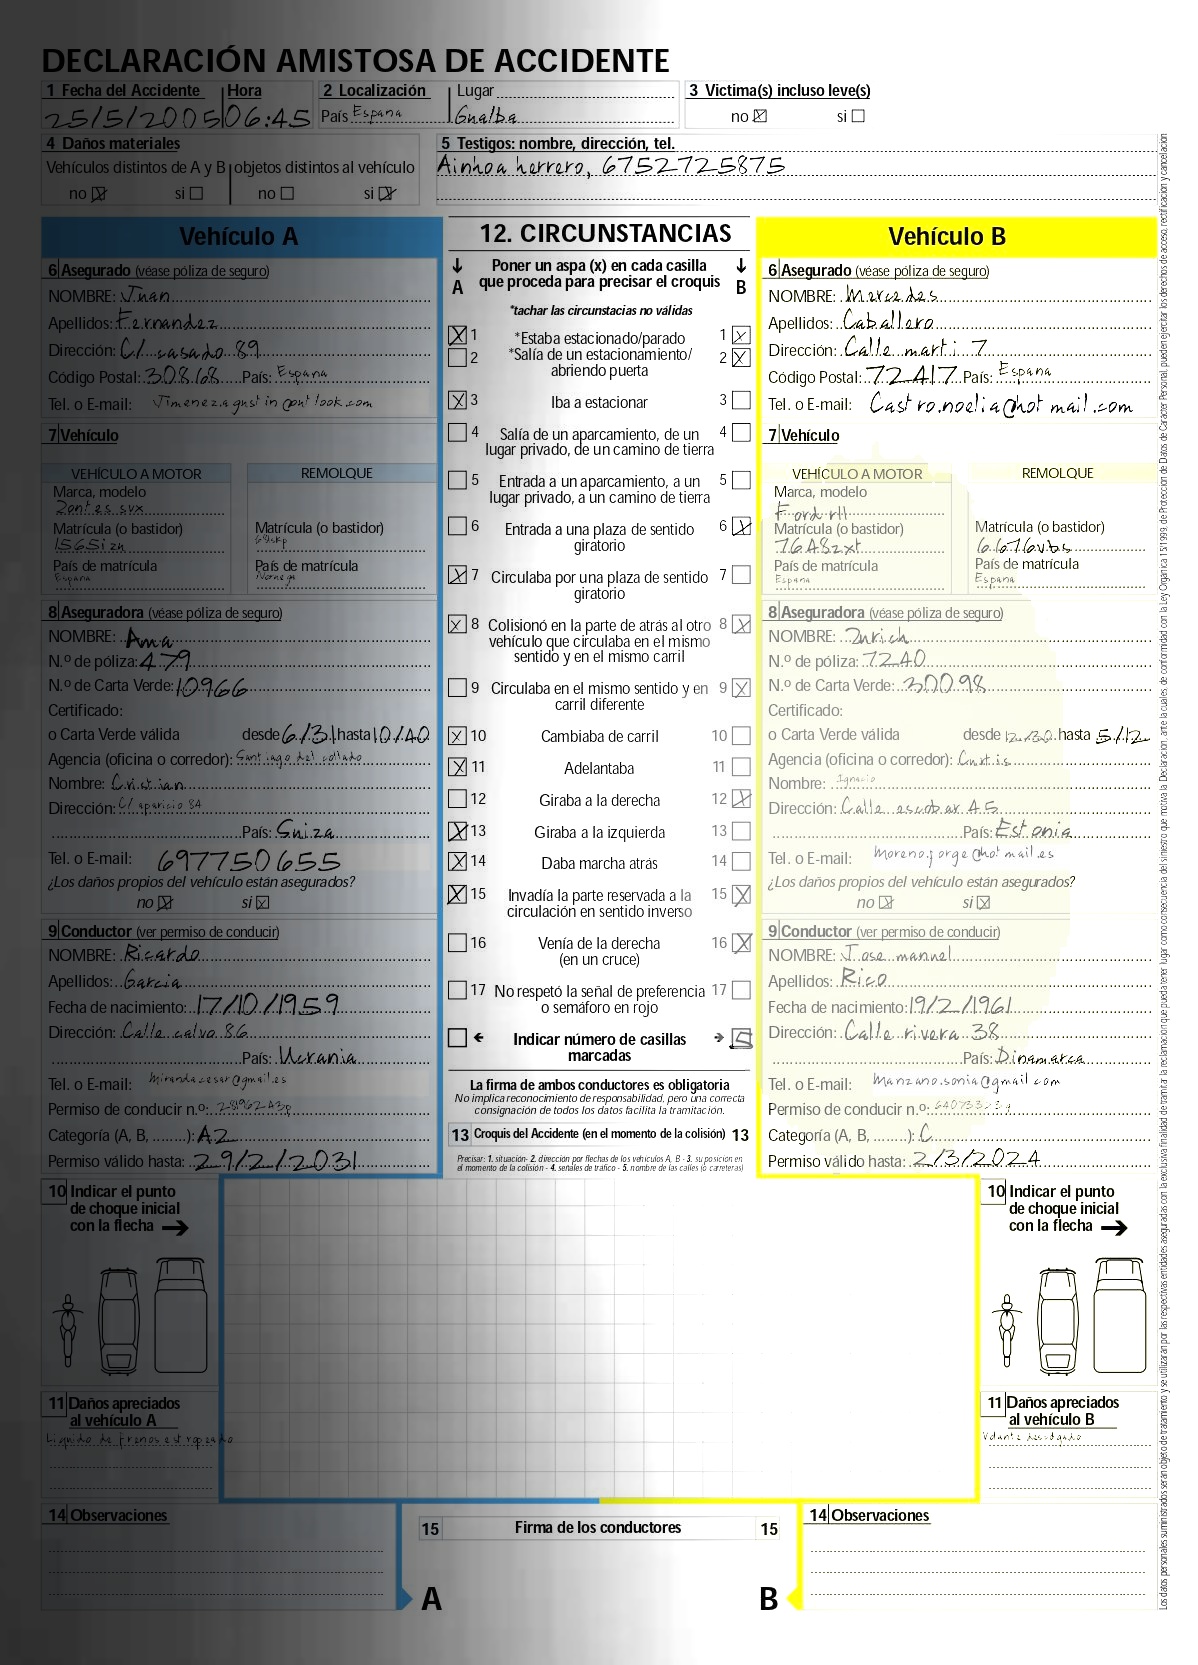 DECLARACIÓN AMISTOSA DE ACCIDENTE
1 Fecha del Accidente Hora 2 Localización Lugar 3 Victima(s) incluso leve(s)
25/5/2005 06:45 País España Gualba no ☒ si ☐
4 Daños materiales 5 Testigos: nombre, dirección, tel.
Vehículos distintos de A y B objetos distintos al vehículo Ainhoa herrero, 6752725875
no ☒ si ☐ no ☐ si ☒
Vehículo A
6 Asegurado (véase póliza de seguro)
NOMBRE: Juan
Apellidos: Fernandez
Dirección: C/ casado 89
Código Postal: 30868 País: España
Tel. o E-mail: Jimenez.agustin@outlook.com
7 Vehículo
VEHÍCULO A MOTOR REMOLQUE
Marca, modelo
Zontes svx
Matrícula (o bastidor) Matrícula (o bastidor)
1565izu
País de matrícula País de matrícula
España Noruega
8 Aseguradora (véase póliza de seguro)
NOMBRE: Ama
N.º de póliza: 479
N.º de Carta Verde: 10966
Certificado:
o Carta Verde válida desde 6/31 hasta 10/40
Agencia (oficina o corredor): Santiago del collado
Nombre: Cristian
Dirección: C/ aparicio 84
País: Suiza
Tel. o E-mail: 697750655
¿Los daños propios del vehículo están asegurados?
no ☒ si ☒
9 Conductor (ver permiso de conducir)
NOMBRE: Ricardo
Apellidos: Garcia
Fecha de nacimiento: 17/10/1959
Dirección: Calle calvo 86
País: Ucrania
Tel. o E-mail: Mirandacesar@gmail.es
Permiso de conducir n.º: 2896243p
Categoría (A, B, ........): A2
Permiso válido hasta: 29/2/2031
12. CIRCUNSTANCIAS
Poner un aspa (x) en cada casilla
A que proceda para precisar el croquis B
*tachar las circunstacias no válidas
☒ 1 *Estaba estacionado/parado 1 ☒
☐ 2 *Salía de un estacionamiento/ 2 ☒
abriendo puerta
☒ 3 Iba a estacionar 3 ☐
☐ 4 Salía de un aparcamiento, de un 4 ☐
lugar privado, de un camino de tierra
☐ 5 Entrada a un aparcamiento, a un 5 ☐
lugar privado, a un camino de tierra
☐ 6 Entrada a una plaza de sentido 6 ☒
giratorio
☒ 7 Circulaba por una plaza de sentido 7 ☐
giratorio
☒ 8 Colisionó en la parte de atrás al otro 8 ☒
vehículo que circulaba en el mismo
sentido y en el mismo carril
☐ 9 Circulaba en el mismo sentido y en 9 ☒
carril diferente
☒ 10 Cambiaba de carril 10 ☐
☒ 11 Adelantaba 11 ☐
☐ 12 Giraba a la derecha 12 ☒
☒ 13 Giraba a la izquierda 13 ☐
☒ 14 Daba marcha atrás 14 ☐
☒ 15 Invadía la parte reservada a la 15 ☒
circulación en sentido inverso
☐ 16 Venía de la derecha 16 ☒
(en un cruce)
☐ 17 No respetó la señal de preferencia 17 ☐
o semáforo en rojo
☐ ← Indicar número de casillas →
marcadas
La firma de ambos conductores es obligatoria
No implica reconocimiento de responsabilidad, pero una correcta
consignación de todos los datos facilita la tramitación.
13 Croquis del Accidente (en el momento de la colisión) 13
Precisar: 1. situación- 2. dirección por flechas de los vehículos A, B - 3. su posición en
el momento de la colisión - 4. señales de tráfico - 5. nombre de las calles (o carreteras)
Vehículo B
6 Asegurado (véase póliza de seguro)
NOMBRE: Mercedes
Apellidos: Caballero
Dirección: Calle marti 7
Código Postal: 72417 País: España
Tel. o E-mail: Castro.noelia@hotmail.com
7 Vehículo
VEHÍCULO A MOTOR REMOLQUE
Marca, modelo
Ford rll
Matrícula (o bastidor) Matrícula (o bastidor)
7648zxt 6676vbs
País de matrícula País de matrícula
España España
8 Aseguradora (véase póliza de seguro)
NOMBRE: Zurich
N.º de póliza: 7240
N.º de Carta Verde: 30098
Certificado:
o Carta Verde válida desde 12/30 hasta 5/12
Agencia (oficina o corredor): Curtis
Nombre: Ignacio
Dirección: Calle escobar 45
País: Estonia
Tel. o E-mail: Moreno.jorge@hotmail.es
¿Los daños propios del vehículo están asegurados?
no ☒ si ☒
9 Conductor (ver permiso de conducir)
NOMBRE: Jose manuel
Apellidos: Rico
Fecha de nacimiento: 19/2/1961
Dirección: Calle rivera 38
País: Dinamarca
Tel. o E-mail: Manzano.sonia@gmail.com
Permiso de conducir n.º:
Categoría (A, B, ........): C
Permiso válido hasta: 2/3/2024
10 Indicar el punto
de choque inicial
con la flecha
11 Daños apreciados
al vehículo A
Liquido de frenos estropeado
10 Indicar el punto
de choque inicial
con la flecha
11 Daños apreciados
al vehículo B
Volante descolgado
14 Observaciones
15 Firma de los conductores 15
A B
14 Observaciones
Los datos personales suministrados seran objeto de tratamiento y se utilizaran por las respectivas entidades aseguradas con la exclusiva finalidad de tramitar la reclamacion que pueda tener lugar como consecuencia del siniestro que motiva la Declaracion, ante la cuales, de conformidad con la Ley Organica 15/1999 de Proteccion de Datos de Caracter Personal, pueden ejercitar los derechos de acceso, rectificacion y cancelación